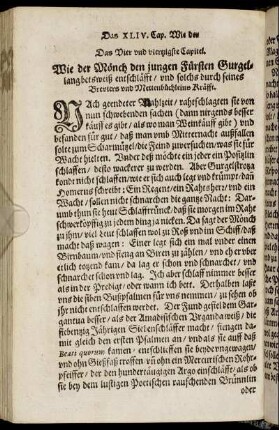 Das XLIV. Cap. Wie der
Das Vier vnd viertzigste Capitel.
Wie der Mönch den jungen Fürsten Gurgel-
langhetsweiß entschläfft / vnd solchs durch seines
Breviers vnd Mettenbüchleins Kräfft.
NAch geendeter Mahlzeit / rahtschlagten sie von
nun schwebenden sachen (dann nirgends besser
täufft es gibt / als wo man Weintäufft gibt) vnd
befanden für gut / daß man vmb Mitternacht außfallen
solte zum Scharmützel / die Feind zuversuchen / was sie für
Wacht hielten. Vnder deß möchte ein jeder ein Poßlin
schlaffen / desto wackerer zu werden. Aber Gurgelstrotza
kondt nicht schlaffen / wie er sich auch legt vnd krümpt / dañ
Homerus schreibt / Ein Regent / ein Rahtsherr / vnd ein
Wacht / sollen nicht schnarchen die gantze Nacht: Dar-
umb thun sie jhene Schlafftrünck / daß sie morgen im Raht
schwerköpffig zu jedem ding ja nicken. Da sagt der Mönch
zu jhm / viel deut schlaffen wol zu Roß vnd im Schiff / daß
macht daß wagen: Einer legt sich ein mal vnder einen
Birnbaum / vnd fieng an Biren zu zählen / vnd eh er vber
etlich tozend kam / da lag er schon vnd schnarchet / vnd
schnarchet schon vnd lag. Ich aber schlaff nimmer besser
als in der Predigt / oder wann ich bett. Derhalben laßt
vns die siben Bußpsalmen für vns nemmen / zu sehen ob
jhr nicht entschlaffen werdet. Der Fund gefiel dem Gar-
gantua besser / als der Amadesischen Vrganda weiß / die
siebentzig Jährigen Siebenschläffer macht / fiengen da-
mit gleich den ersten Psalmen an / vnd als sie auff daß
Beati quorum kamen / entschlieffen sie beyde vngewagen /
vnd ohn Gießfaß troffen vñ ohn ein Mercurischen Rohr-
pfeiffer / der den hundertäugigen Argo einschläfft / als ob
sie bey dem lustigen Poetischen rauschenden Brünnlin
oder